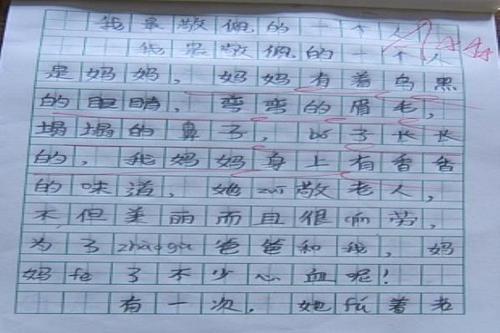 我最敬佩的一个人
我最敬佩的一个人
是妈妈，妈妈有着乌黑
的眼睛，弯弯的眉毛，
塌塌的鼻子，bó子长长
的，我妈妈身上有香香
的味道，她zūn敬老人，
不但美丽而且很劳，
为了zhàogù爸爸和我，妈
妈fe了不少心血呢！
有一次，她fú着老